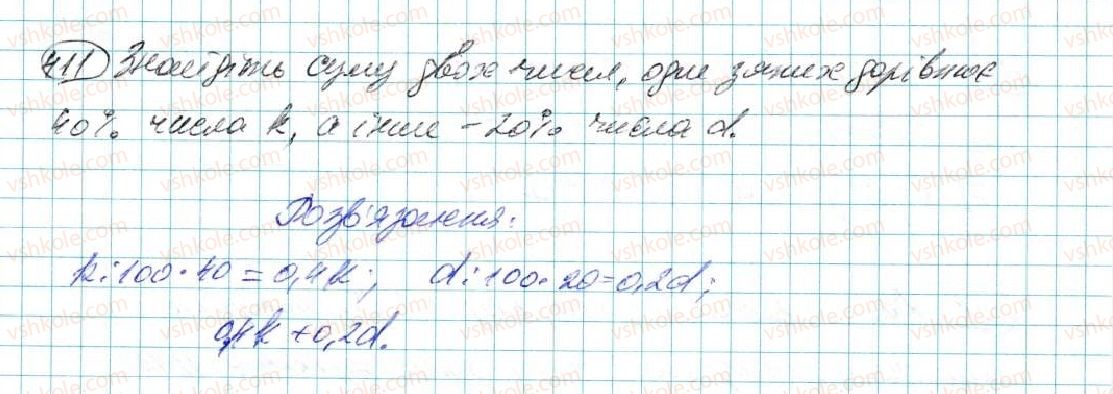 411 Знайдіть суму двох чисел, одне з яких дорівнює
40% числа k, а інше - 20% числа d.
Розв'язання:
k:100·40=0,4k; d:100·20=0,2d;
0,4k+0,2d.